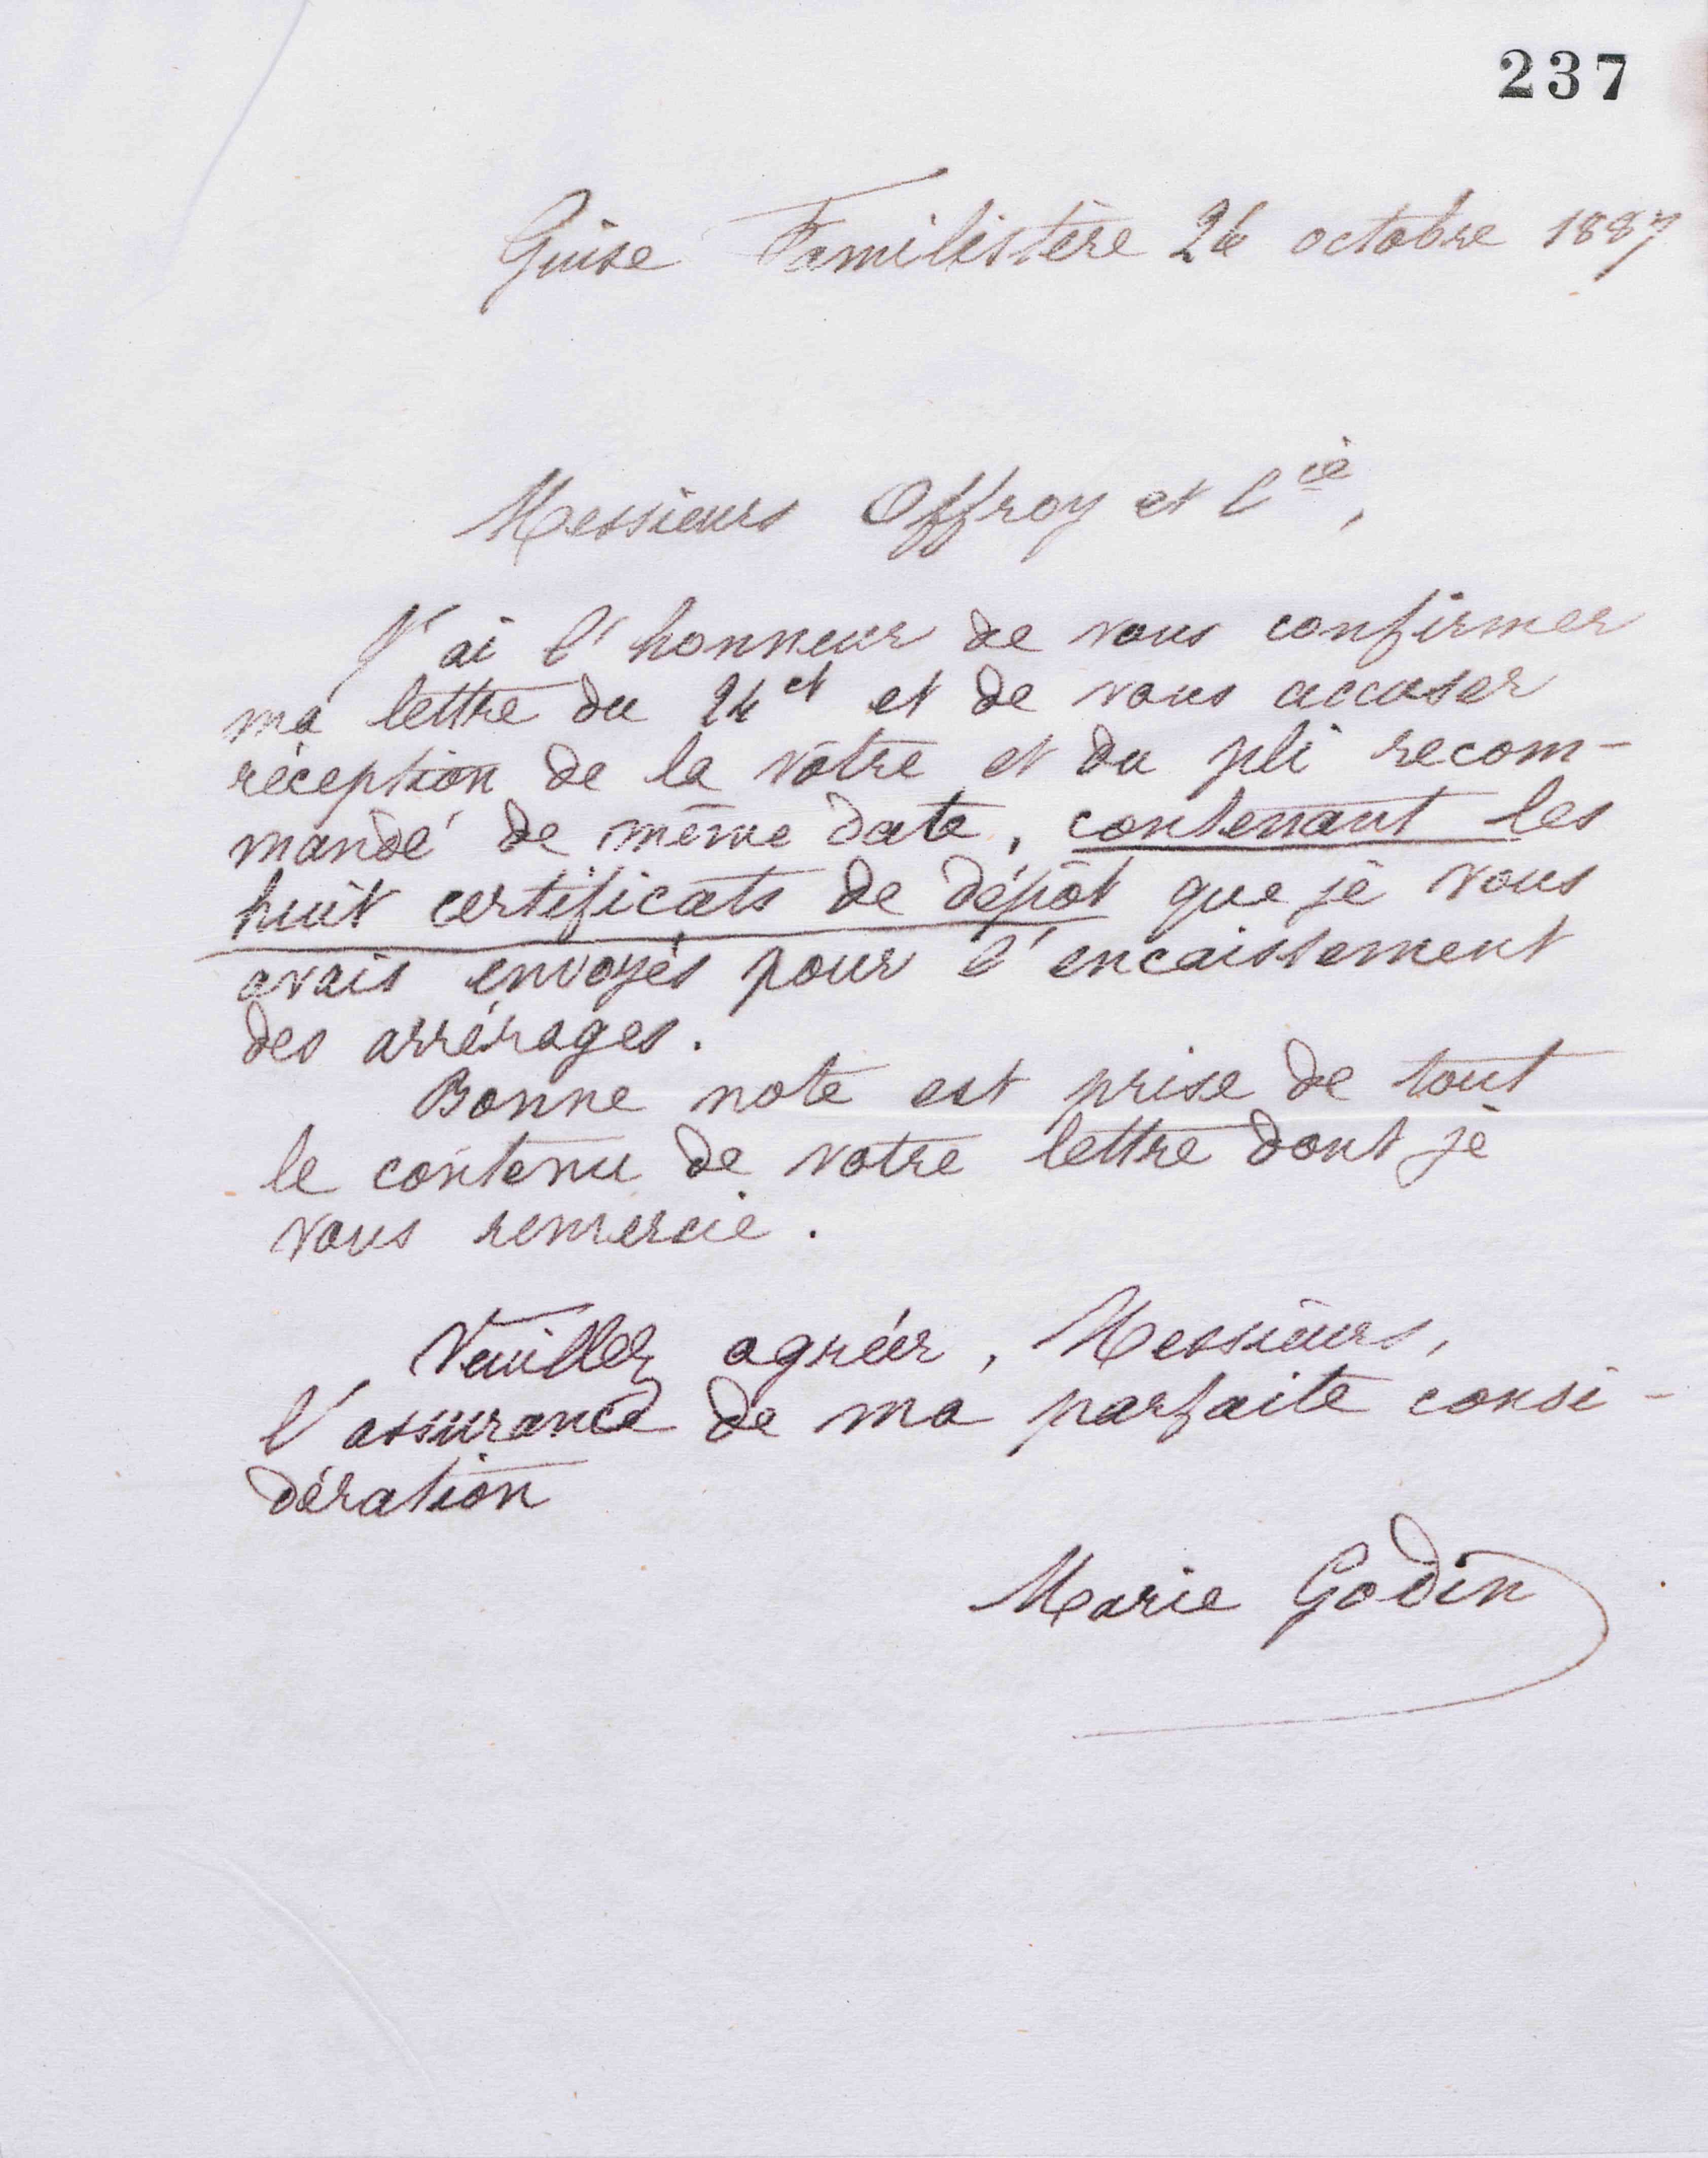 237
Guise Familistère 26 octobre 1887
Messieurs Offroy et Cie,
J'ai l'honneur de vous confirmer
ma lettre du 24 ct et de vous accuser
réception de la vôtre et du pli recom-
mandé de même date, contenant les
huit certificats de dépôt que je vous
avais envoyés pour l'encaissement
des arrérages.
Bonne note est prise de tout
le contenu de votre lettre dont je
vous remercie.
Veuillez agréer, Messieurs,
l'assurance de ma parfaite consi-
dération
Marie Godin